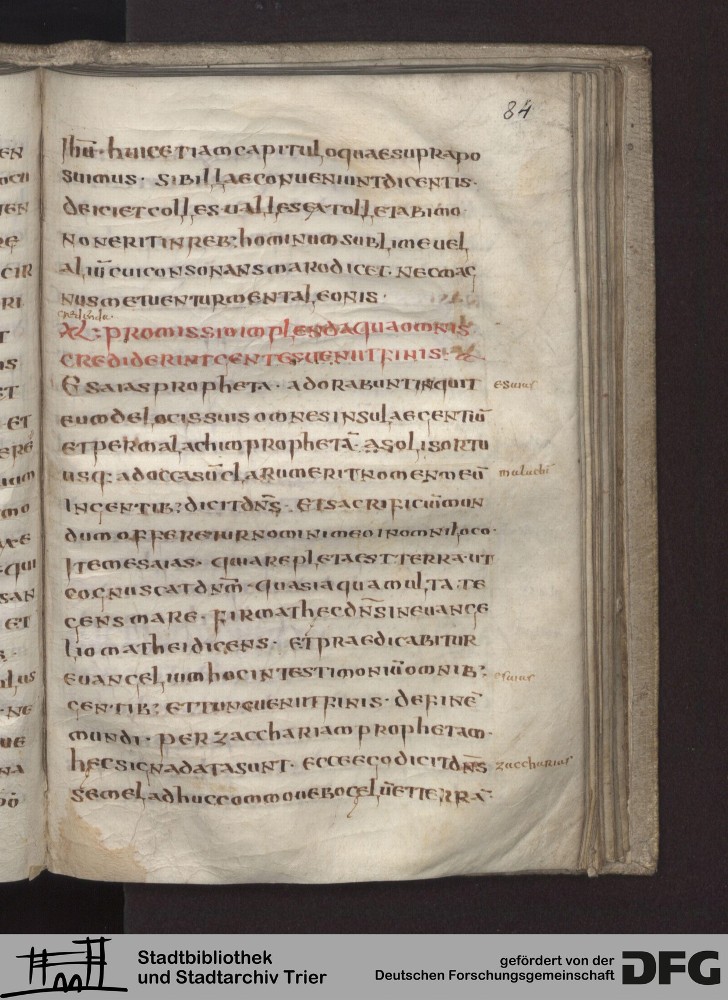 84
ihū· huic etiam capitulo quae suprapo
suimus· sibillae conueniunt dicentis·
deiciet colles· ualles extollet ab imo
non erit in reb: hominum sublime uel
aliū cui consonans maro dicet· nec mag
nus metuentur menta leonis·
credenda·
XL: promissio implenda qua omnis
crediderint gentes uenit finis:
Esaias propheta· adorabunt inquit
esaias
eum de locis suis omnes insulae gentiū
et per malachim prophetā· a solis ortu
usq: ad occasū clarum erit nomen meū
malachi
in gentib: dicit dn̄s· et sacrificiū mun
dum offeretur nomini meo in omni loco·
Item esaias· quia repleta est terra· ut
cognuscat dn̄m· quasi aqua multa te
gens mare· firmat hec dn̄s in euange
lio mathei dicens· et praedicabitur
euangelium hoc in testimoniū omnib:
esaias
gentib: et tunc uenit finis· define
mundi· per zacchariam prophetam·
hec signa data sunt· ecce ego dicit dn̄s
zaccharias
semel adhuc commouebo celū et terrā·
Stadtbibliothek
und Stadtarchiv Trier
gefördert von der
Deutschen Forschungsgemeinschaft
DFG